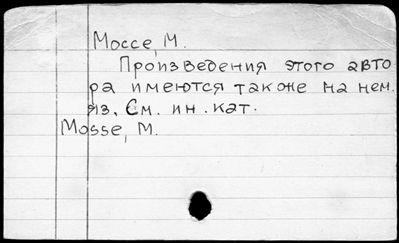 Моссе, М.
Произведения этого авто
ра имеются также на нем.
яз. См. ин. кат.
Mosse, M.